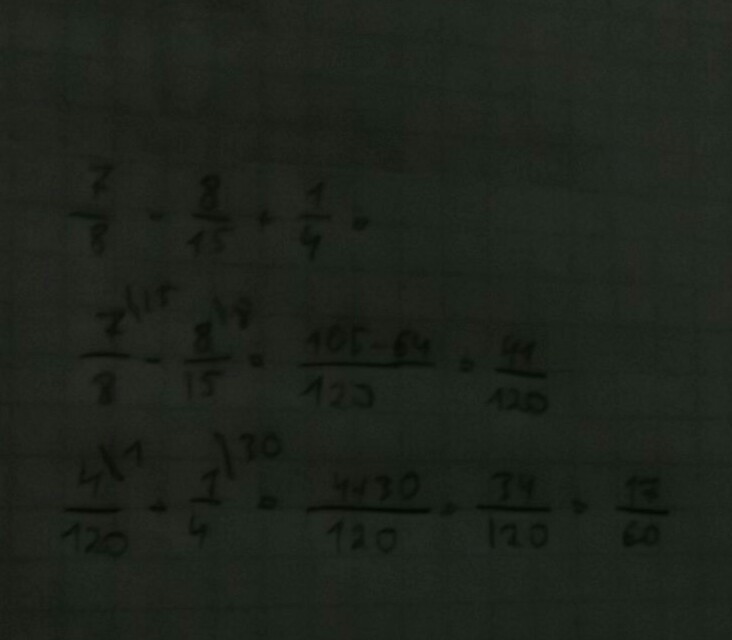 7/8 - 8/15 + 1/4 =
7\15/8 - 8\8/15 = 105-64/120 = 41/120
4\1/120 + 1\30/4 = 4+30/120 = 34/120 = 17/60